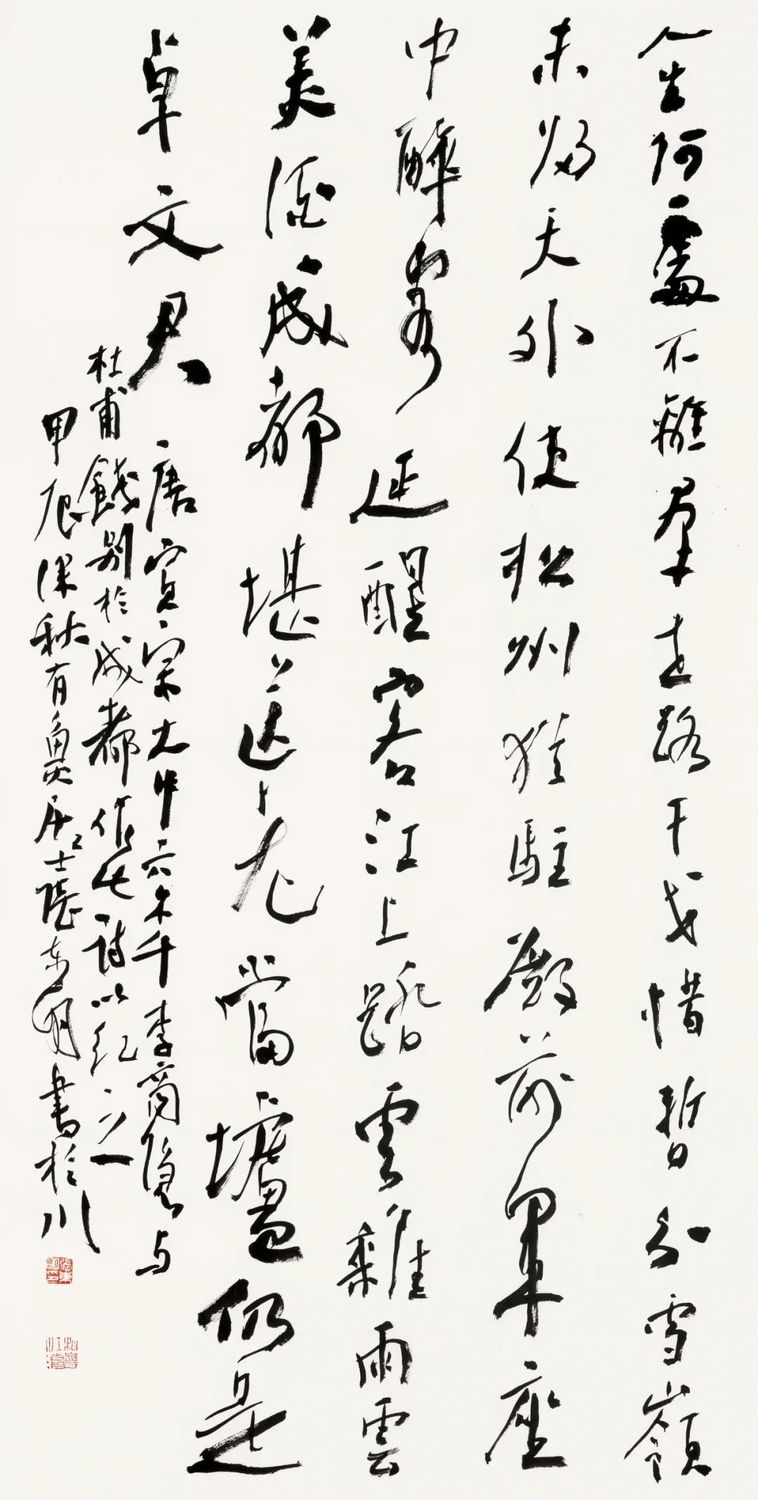 人生何處不離羣世路干戈惜暫分雪嶺
未歸天外使松州猶駐殿前軍座
中醉客延醒客江上晴雲雜雨雲
美酒成都堪送老當壚仍是
卓文君
唐宣宗大中六年李商隱与
杜甫餞別於成都作此詩以紀之
甲辰深秋有居士張東明書於川